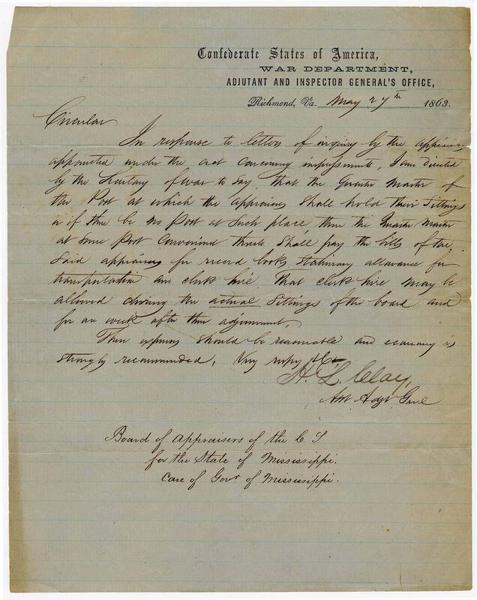 Confederate States of America,
WAR DEPARTMENT,
ADJUTANT AND INSPECTOR GENERAL'S OFFICE,
Richmond, Va. May 27th 1863.
Circular
In response to letters of inquiry by the Appraisers
appointed under the act concerning impressments, I am directed
by the Secretary of war to say, that the Quarter Master of
the Post at which the Appraisers shall hold their Sittings
or if there be no Post at such place, then the Quarter Master
at some Post convenient thereto shall pay the bills of the
said appraisers for record books stationary allowance for
transportation and clerk hire. That clerk hire may be
allowed during the actual Sittings of the board and
for one week after their adjournment.
Their expenses should be reasonable and economy is
strongly recommended. Very respy &c
H. L. Clay,
Asst Adjt Genl
Board of Appraisers of the C S
for the State of Mississippi.
Care of Govr of Mississippi.